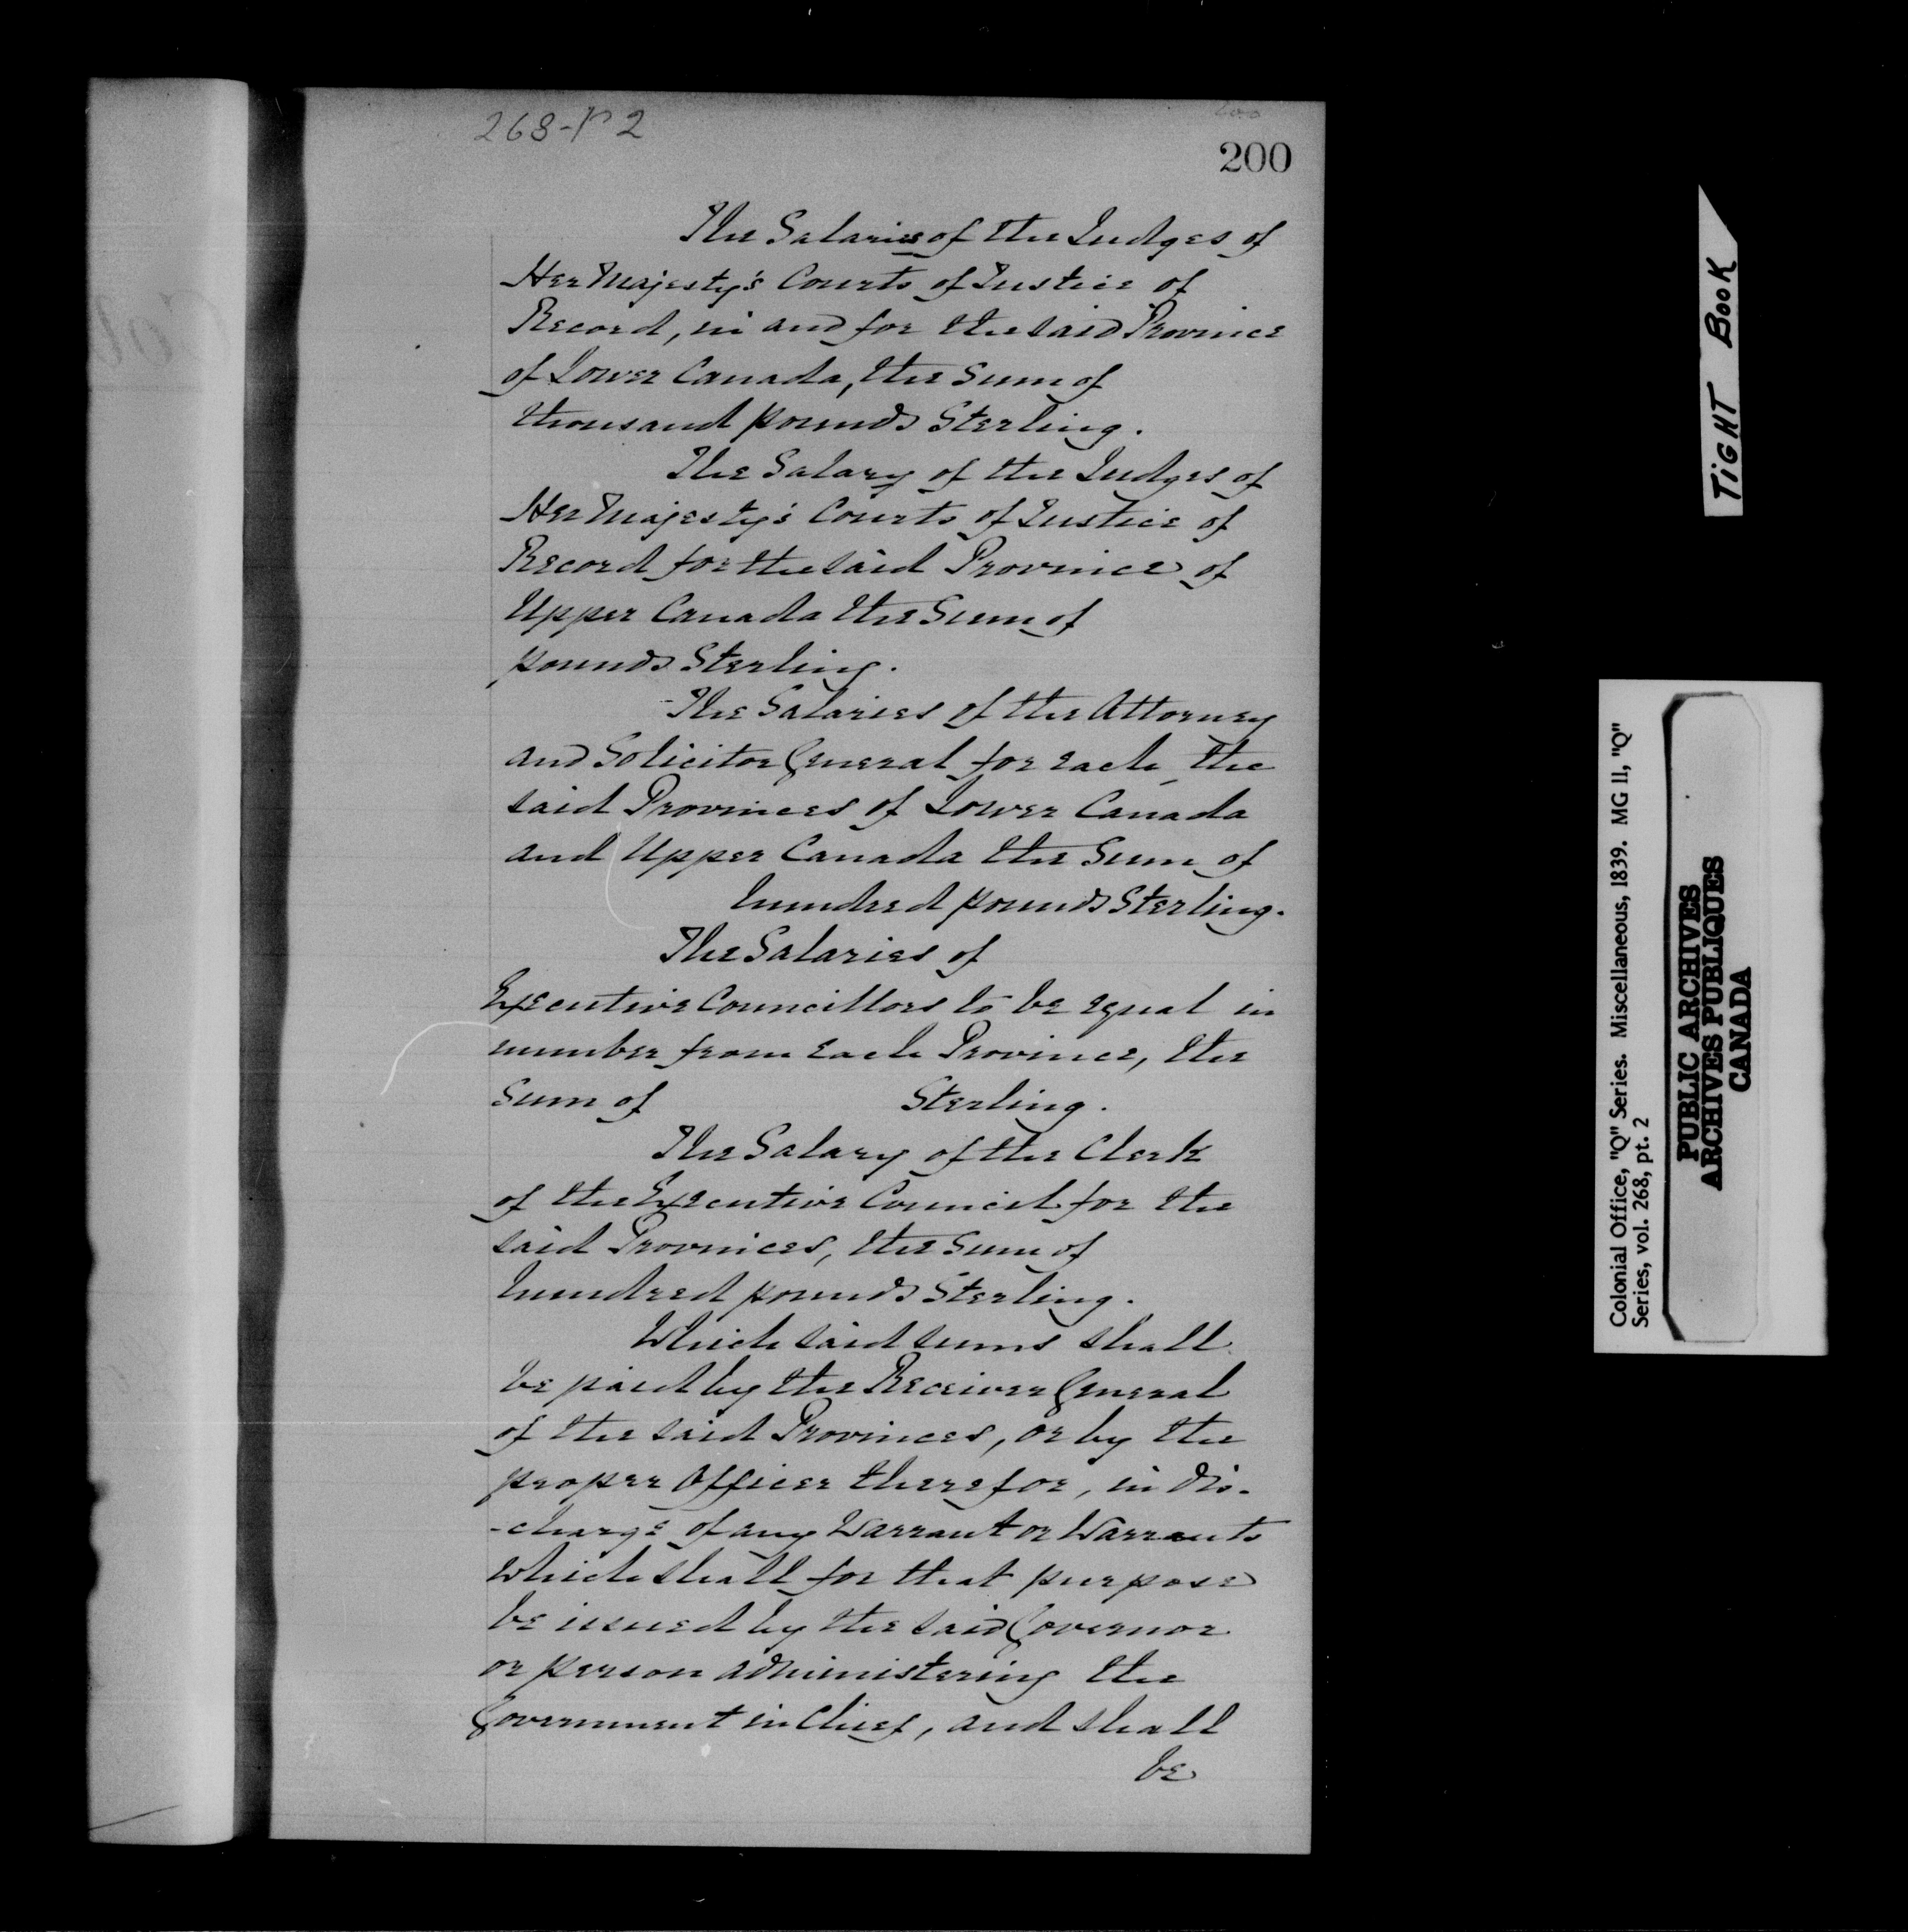 268-P2
200
200
The Salaries of the Judges of
Her Majesty's Courts of Justice of
Record, in and for the said Province
of Lower Canada, the Sum of
thousand pounds Sterling.
The Salary of the Judges of
Her Majesty's Courts of Justice of
Record for the said Province of
Upper Canada the Sum of
pounds Sterling.
The Salaries of the Attorney
and Solicitor General for each the
said Provinces of Lower Canada
and Upper Canada the Sum of
hundred pounds Sterling.
The Salaries of
Executive Councillors to be equal in
number from each Province, the
Sum of Sterling.
The Salary of the Clerk
of the Executive Council for the
said Provinces, the Sum of
hundred pounds Sterling.
Which said sums shall
be paid by the Receiver General
of the said Provinces, or by the
proper Officer therefor, in dis-
-charge of any Warrant or Warrants
which shall for that purpose
be issued by the said Governor
or person administering the
Government in Chief, and shall
be
TIGHT BOOK
Colonial Office, "Q" Series. Miscellaneous, 1839. MG 11, "Q"
Series, vol. 268, pt. 2
PUBLIC ARCHIVES
ARCHIVES PUBLIQUES
CANADA